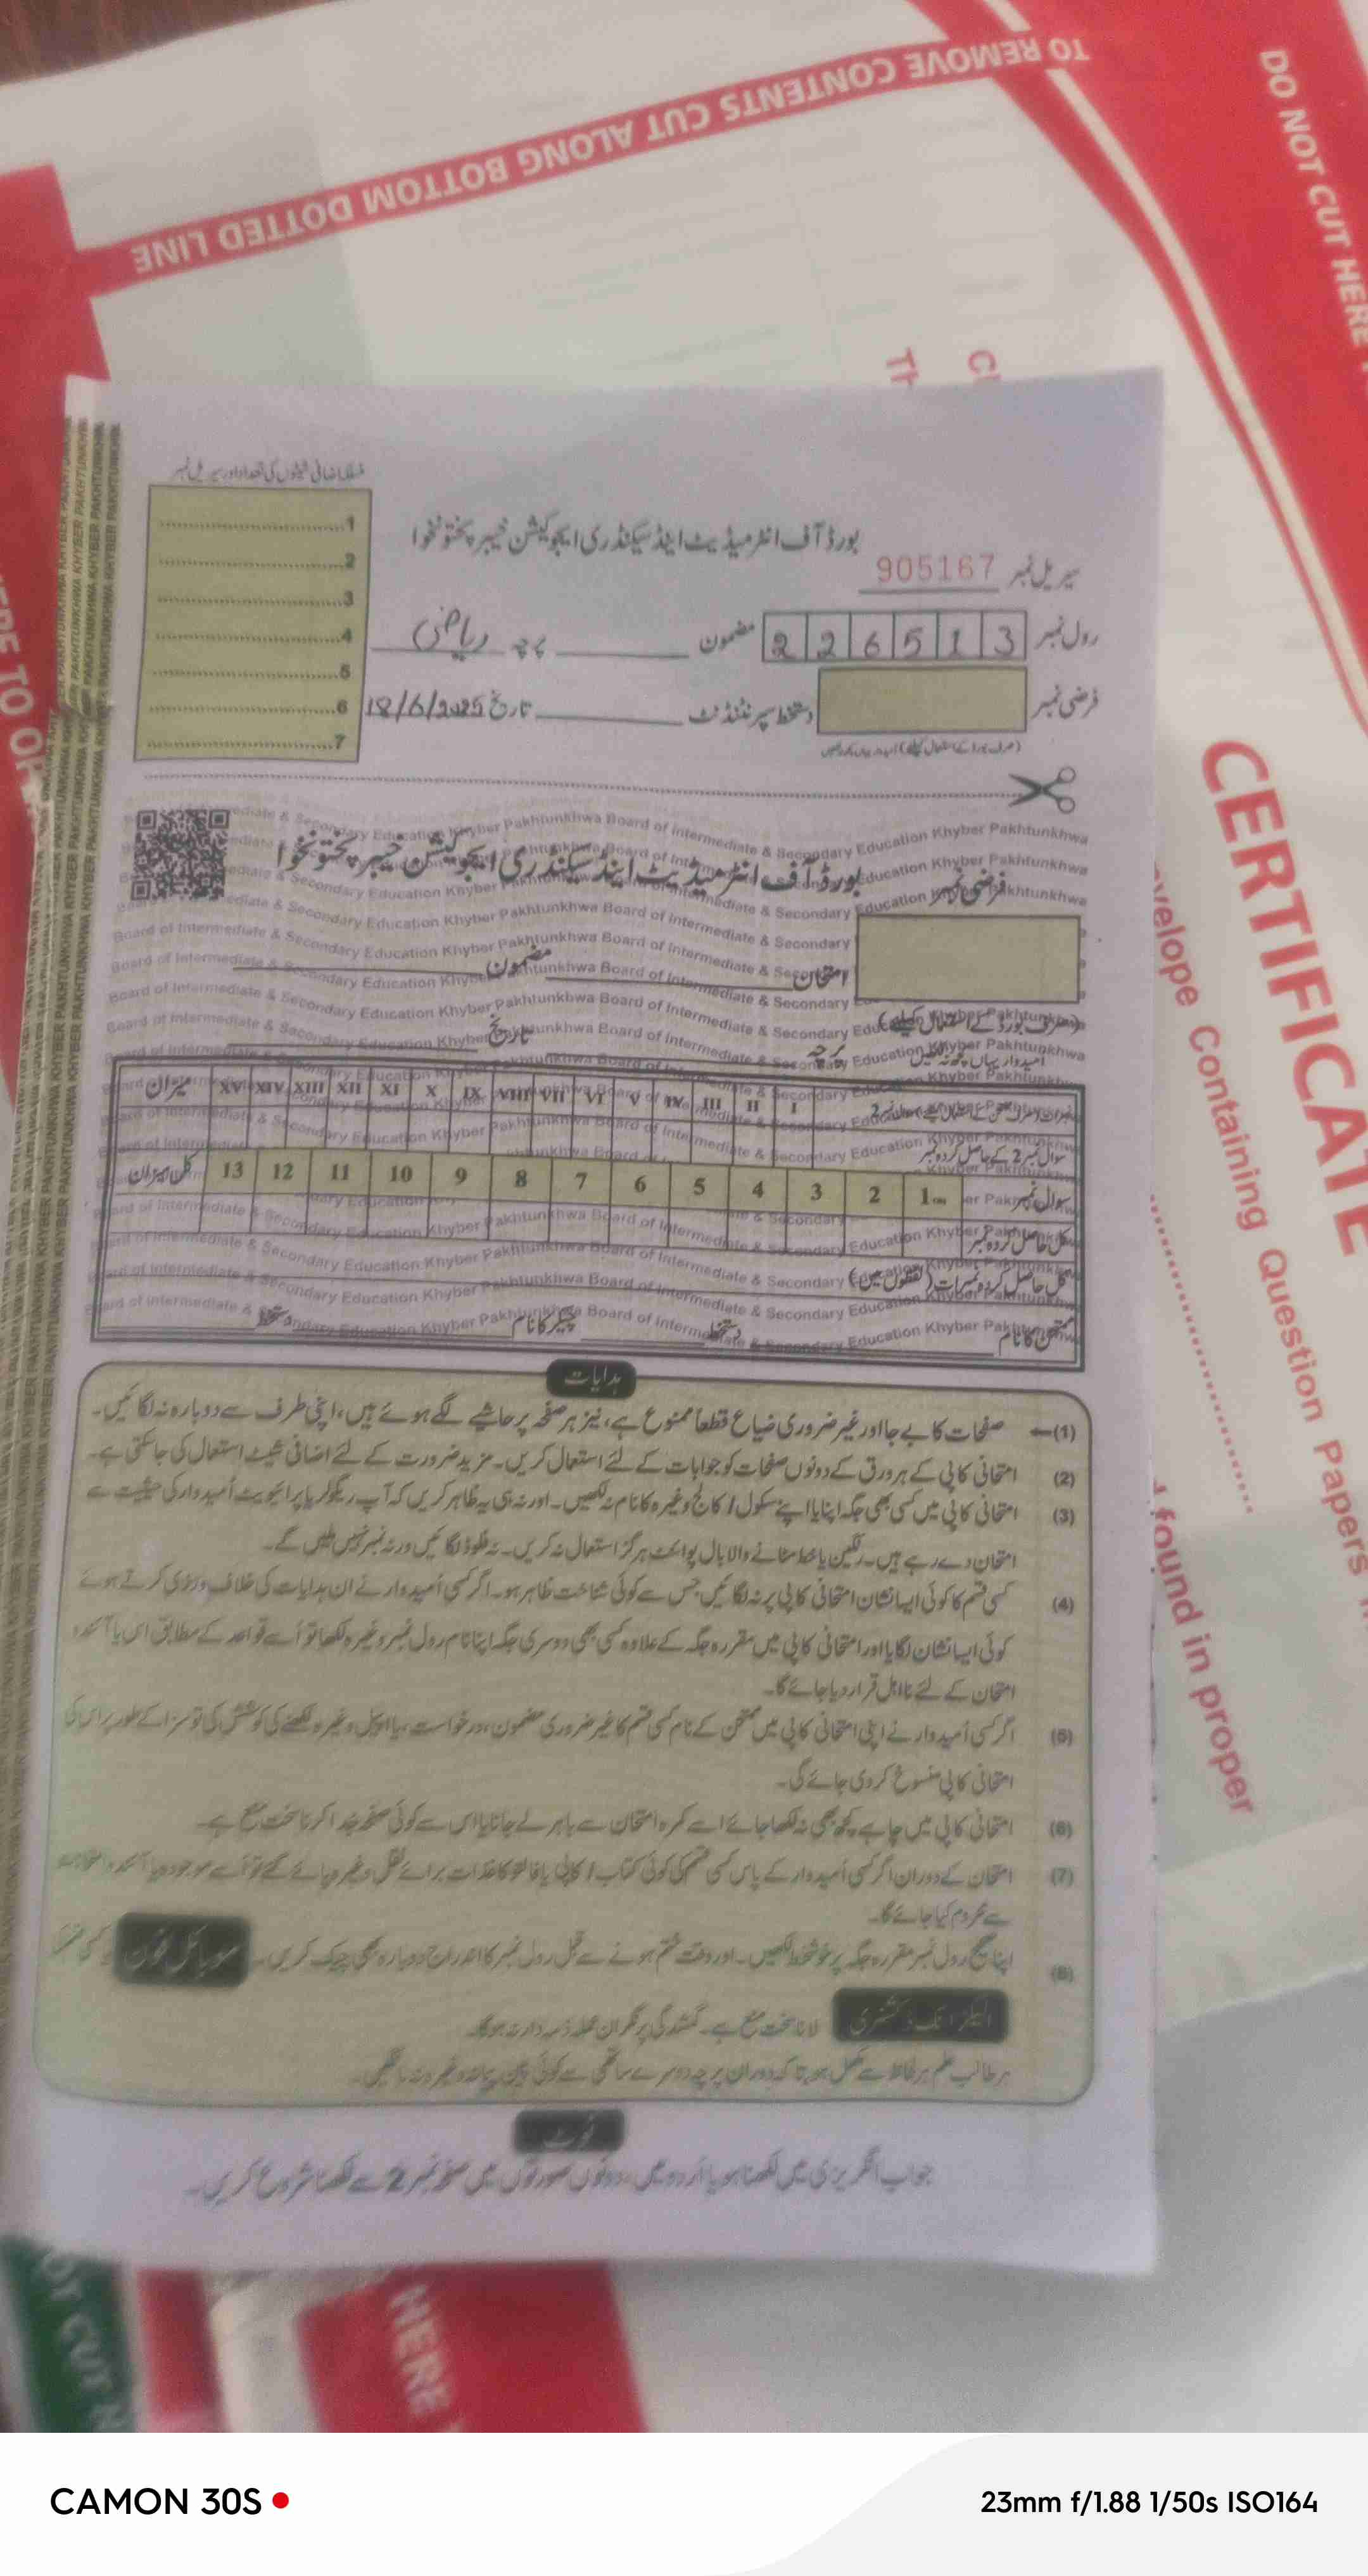 TO REMOVE CONTENTS CUT ALONG BOTTOM DOTTED LINE
DO NOT CUT HERE
بورڈ آف انٹرمیڈیٹ اینڈ سیکنڈری ایجوکیشن خیبر پختونخوا
سیریل نمبر 905167
رول نمبر 2 2 6 5 1 3 مضمون پرچہ ریاضی
فرضی نمبر دستخط سپرنٹنڈنٹ تاریخ 18/6/2025
1
2
3
4
5
6
7
بورڈ آف انٹرمیڈیٹ اینڈ سیکنڈری ایجوکیشن خیبر پختونخوا
فرضی نمبر
امتحان مضمون
(صرف بورڈ کے استعمال کیلئے)
پرچہ تاریخ
Board of Intermediate & Secondary Education Khyber Pakhtunkhwa
I II III IV V VI VII VIII IX X XI XII XIII XIV XV میزان
سوال نمبر 2 کے حاصل کردہ نمبر
سوال نمبر 1 2 3 4 5 6 7 8 9 10 11 12 13 کل میزان
کل حاصل کردہ نمبر
کل حاصل کردہ نمبرات (لفظوں میں)
ممتحن کا نام دستخط چیکر کا نام دستخط
ہدایات
(1) صفحات کا بے جا اور غیر ضروری ضیاع قطعاً ممنوع ہے، نیز ہر صفحہ پر حاشیے لگے ہوئے ہیں، اپنی طرف سے دوبارہ نہ لگائیں۔
(2) امتحانی کاپی کے ہر ورق کے دونوں صفحات کو جوابات کے لئے استعمال کریں۔ مزید ضرورت کے لئے اضافی شیٹ استعمال کی جاسکتی ہے۔
(3) امتحانی کاپی میں کسی بھی جگہ اپنا یا اپنے سکول / کالج وغیرہ کا نام نہ لکھیں۔ اور نہ ہی یہ ظاہر کریں کہ آپ ریگولر یا پرائیویٹ اُمیدوار کی حیثیت سے
امتحان دے رہے ہیں۔ رنگین یا خط مٹانے والا بال پوائنٹ ہرگز استعمال نہ کریں۔
(4) کسی قسم کا کوئی ایسا نشان امتحانی کاپی پر نہ لگائیں جس سے کوئی شناخت ظاہر ہو۔ اگر کسی اُمیدوار نے ان ہدایات کی خلاف ورزی کرتے ہوئے
کوئی ایسا نشان لگایا اور امتحانی کاپی میں مقررہ جگہ کے علاوہ کسی بھی دوسری جگہ اپنا نام رول نمبر وغیرہ لکھا تو اُسے قواعد کے مطابق اس یا آئندہ
امتحان کے لئے نااہل قرار دیا جائے گا۔
(5) اگر کسی اُمیدوار نے اپنی امتحانی کاپی میں ممتحن کے نام کسی قسم کا غیر ضروری مضمون، درخواست، یا اپیل وغیرہ لکھنے کی کوشش کی تو سزا کے طور پر اس کی
امتحانی کاپی منسوخ کر دی جائے گی۔
(6) امتحانی کاپی میں چاہے کچھ بھی نہ لکھا جائے اسے کمرہ امتحان سے باہر لے جانا یا اس سے کوئی صفحہ جدا کرنا سخت منع ہے۔
(7) امتحان کے دوران اگر کسی اُمیدوار کے پاس کسی قسم کی کوئی کتاب / کاپی یا فالتو کاغذات برائے نقل وغیرہ پائے گئے تو اُسے موجودہ یا آئندہ
سے محروم کیا جائے گا۔
(8) اپنا صحیح رول نمبر مقررہ جگہ پر خوشخط لکھیں۔ اور وقت ختم ہونے سے قبل رول نمبر کا اندراج دوبارہ بھی چیک کریں۔ موبائل فون
الیکٹرانک ڈکشنری لانا سخت منع ہے۔ گمشدگی پر نگران عملہ ذمہ دار نہ ہوگا۔
نوٹ
جواب انگریزی میں لکھنا ہو یا اُردو میں، دونوں صورتوں میں صفحہ نمبر 2 سے لکھنا شروع کریں۔
CERTIFICATE
velope Containing Question Papers
found in proper
CAMON 30S
23mm f/1.88 1/50s ISO164